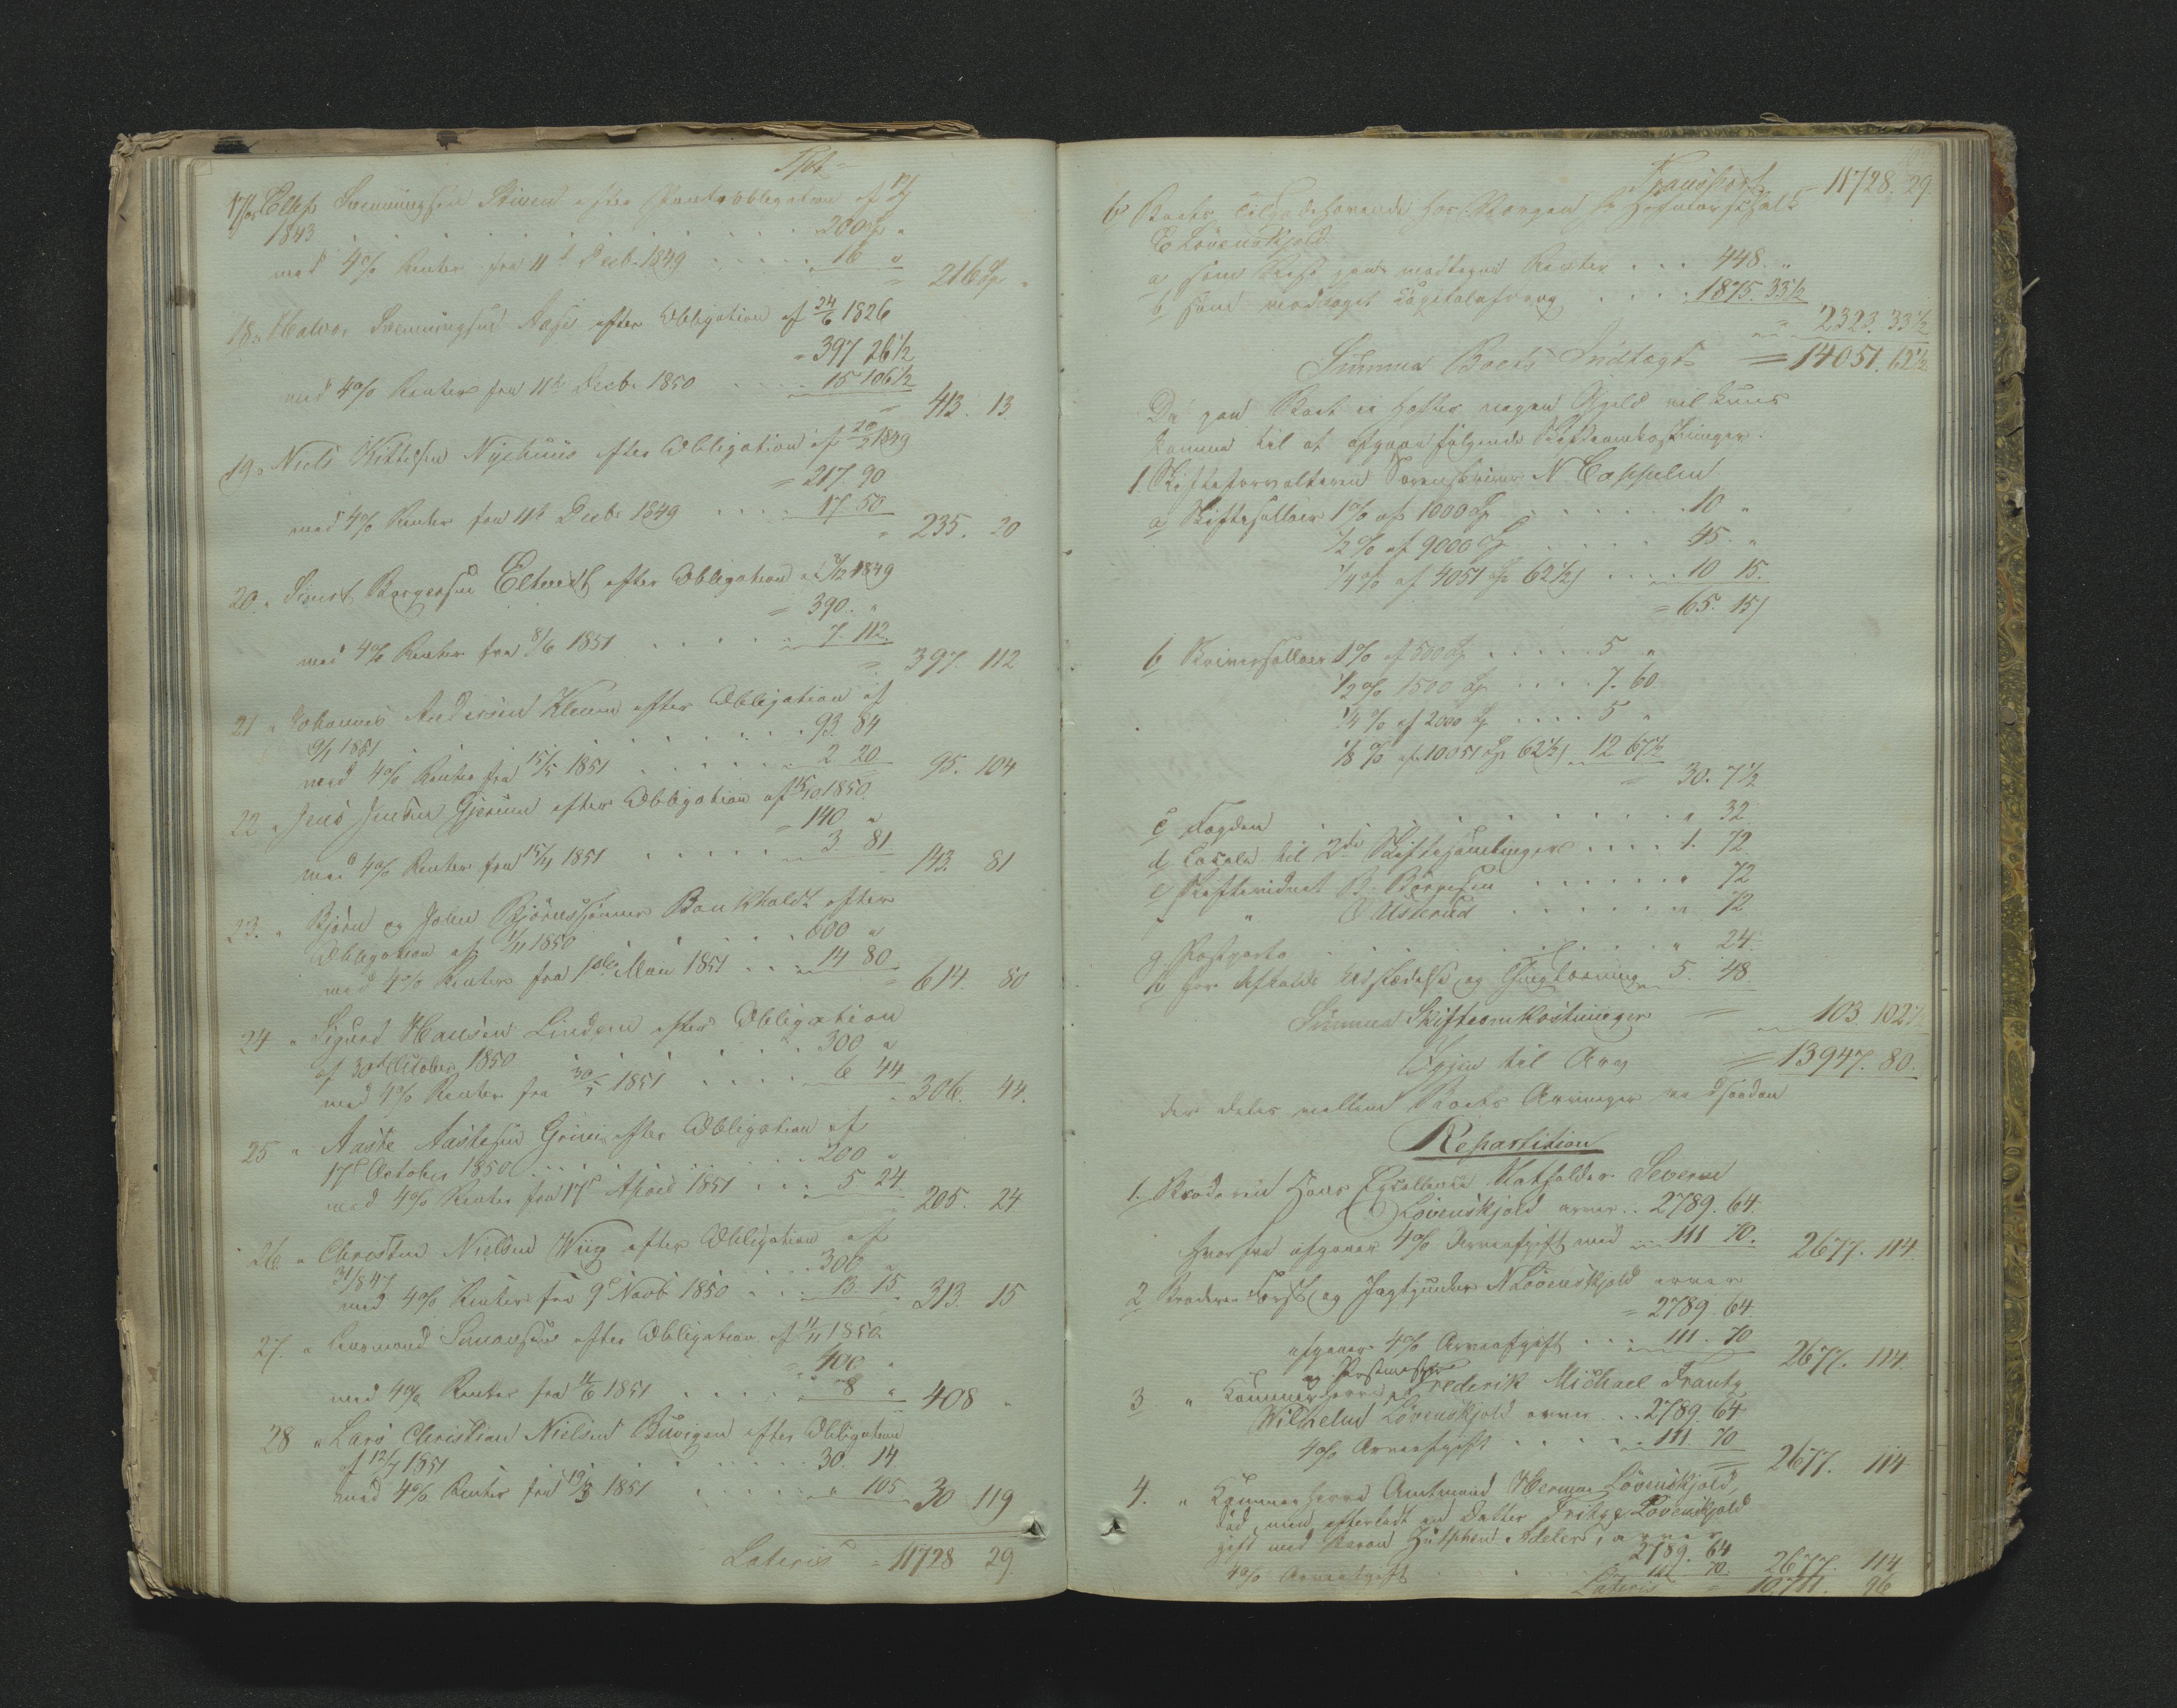 Tpt
17 for Ellef Svenningsen Skiven efter Pantobligation af
1843 . . . 200 Sp "
med 4% Renter fra 11te Decb. 1849 . . . 16 "
= 216 Sp "
18 " Halvor Svenningsen Aasie efter Obligation af 24/6 1826
= 397 26½
med 4% Renter fra 11te Decbr 1850 . . . 15 106½
= 413. 13
19 " Niels Kittilsen Nyehuus efter Obligation af 20/2 1849
= 217. 90
med 4% Renter fra 11te Decbr 1849 . . . 17 50
= 235. 20
20 " Simert Borgersen Eltvedt efter Obligation af 1849
= 390. "
med 4% Renter fra 8/6 1851 . . . 7. 112
= 397. 112
21 " Johannes Andersen Kleven efter Obligation af
9/1 1851 . . . 93. 84
med 4% Renter fra 15/5 1851 . . . 2 20
95. 104
22 " Jens Jensen Gjerum efter Obligation af 15/10 1850.
= 140 "
med 4% Renter fra 15/4 1851 . . . 3. 81
143. 81
23. " Björn og John Björnssönner Bankhaldt efter
Obligation af 1/11 1850 . . . 600 "
med 4% Renter fra 1ste Mai 1851 . . . 14 80
= 614. 80
24 " Sigurd Hansen Linden efter Obligation
af 30te October 1850 . . . 300 "
med 4% Renter fra 30/5 1851 . . . 6 44
306. 44.
25 " Aaste Aastesen Grini efter Obligation af
17de October 1850 . . . 200 "
med 4% Renter fra 17de April 1851 . . . 5 24
205. 24
26 " Christen Nielsen Wiig efter Obligation af
31/8 47 . . . 300 "
med 4% Renter fra 9de Novb. 1850 . . . 13. 15
313. 15
27. " Simonsen efter Obligation af 11/11 1850.
= 400 "
med 4% Renter fra 11/6 1851 . . . 8 "
408 "
28 " Lars Christian Nielsen Buvigen efter Obligation
af 12/7 1851 . . . 30. 14
med 4% Renter fra 1851 . . . " 105
30 119
Lateris = 11728 29
Transport = 11728. 29.
6 Boets Tilgodehavende hos Hofmarschalk
E Lövenskjold
a som Rest paa modtagne Renter . . . 448. "
b som modtaget Capitalafdrag . . . 1875. 33½
= 2323. 33½
Summa Boets Indtægt = 14051. 62½
Da paa Boet ei hefter nogen Gjeld vil kuns
komme til at afgaae følgende Skifteomkostninger.
1. Skifteforvalteren Sorenskriver N Coppelen
a Skiftesallair 1% af 1000 Sp . . . 10 "
½% af 9000 Sp . . . 45. "
¼% af 4051 Sp 62½ s . . . 10 15.
= 65. 15
b Skriversallair 1% af 500 Sp . . . 5 "
½% 1500 Sp . . . 7. 60
¼% af 2000 Sp . . . 5 "
⅛% af 10051 Sp 62½ s . . 12 67½
30. 7½
c Fogden . . . " 32
d Locale til 2de Skiftesamlinger . . . 1. 72
e Skiftevidnet B. Börresen . . . " 72
f " O Usterud . . . " 72
g Postporto . . . " 24.
h for Afkalds Udstædelse og Thinglæsning . . 5. 48.
Summa Skifteomkostninger = 103. 102
Igjen til Arv = 13947. 80.
der deles mellem Boets Arvinger ved saadan
Repartition
1. Broderen Hans Excellence Statholder Severin
Lövenskjold arver . . 2789. 64.
hvorfra afgaaer 4% Arveafgift med . . 111 70.
2677. 114
2 Broderen Forst og Jagtjunker N Lövenskjold arver
= 2789. 64.
afgaaer 4% Arveafgift . . . 111. 70
2677. 114.
og Postmester
3 " Kammerherre Frederik Michael Frantz
Wilhelm Lövenskjold arver . . . 2789. 64
4% Arveafgift . . . 111 70
= 2677. 114
4. " Kammerherre Amtmand Herman Lövenskjold,
död, men efterladt en Datter Lövenskjold
gift med Baron Zütphen Adeler, arver
2789. 64
4% Arveafgift . . . 111 70. 2677. 114
Lateris = 10711. 96